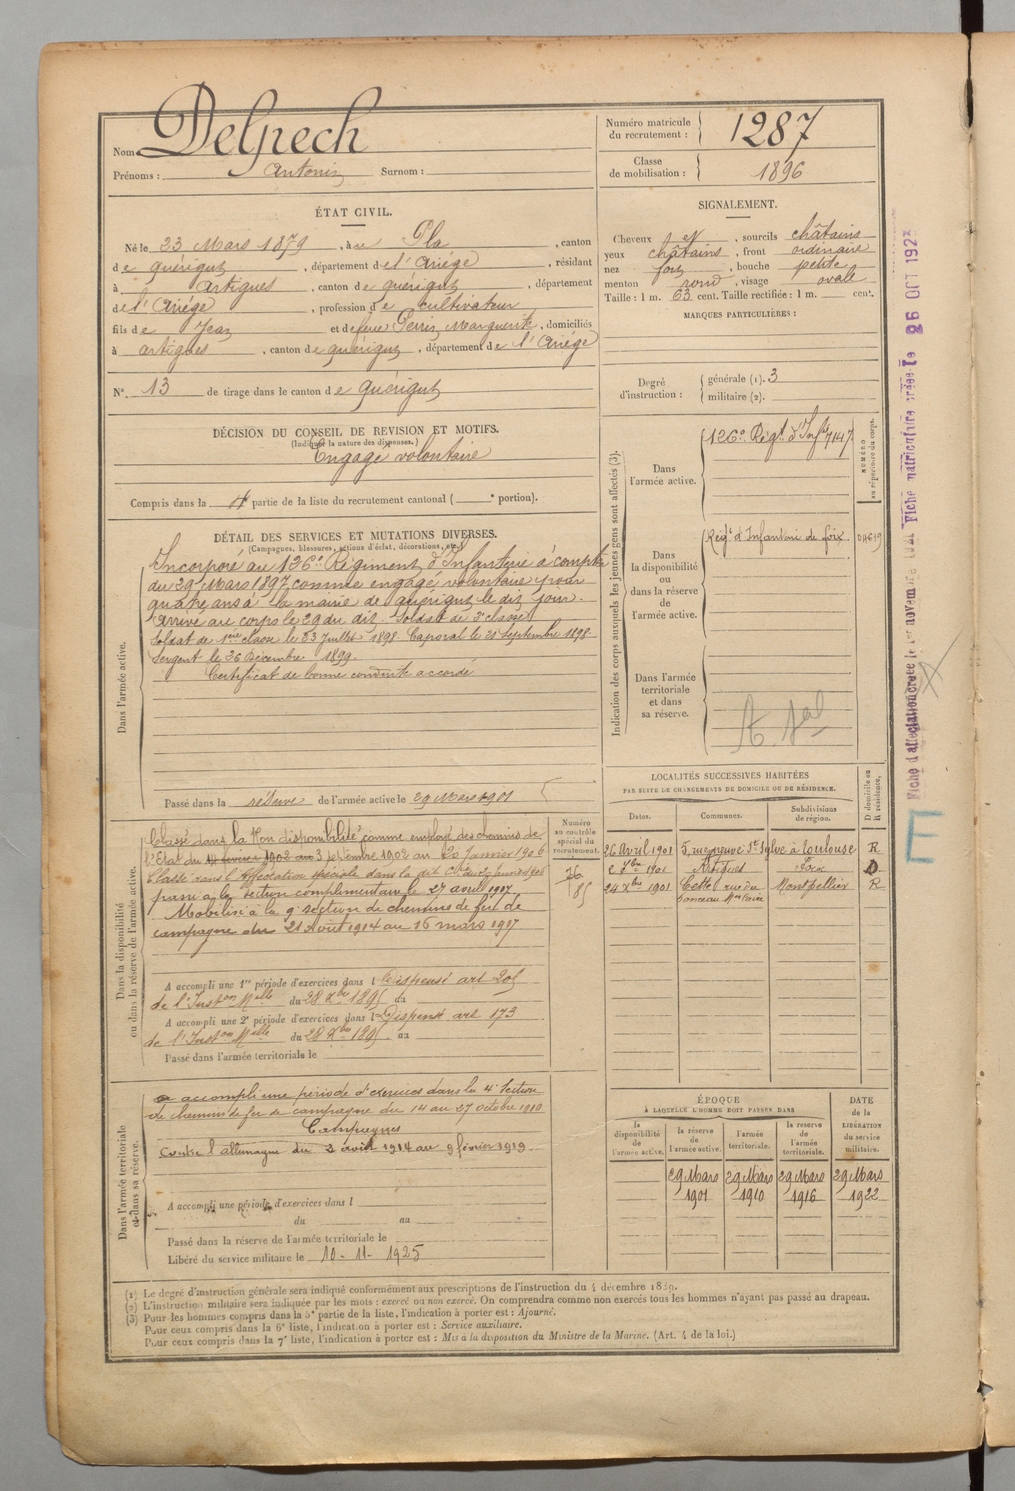 Nom Delpech
Prénoms : Antonin Surnom :
Numéro matricule du recrutement : 1287
Classe de mobilisation : 1896
ÉTAT CIVIL.
Né le 23 Mars 1879, à u Pla, canton
de quérigut, département de l'Ariége, résidant
à Artigues, canton de quérigut, département
de l'Ariége, profession de cultivateur
fils de Jean et de feue Perrin Marguerite, domiciliés
à artigues, canton de quérigut, département de l'Ariége
N° 13 de tirage dans le canton de quérigut
SIGNALEMENT.
Cheveux et, sourcils châtains
yeux châtains, front ordinaire
nez fort, bouche petite
menton rond, visage ovale
Taille : 1 m. 63 cent. Taille rectifiée : 1 m. cent.
MARQUES PARTICULIÈRES :
Degré d'instruction : générale (1). 3
militaire (2).
DÉCISION DU CONSEIL DE REVISION ET MOTIFS.
(Indiquer la nature des dispenses.)
Engagé volontaire
Compris dans la partie de la liste du recrutement cantonal ( ° portion).
DÉTAIL DES SERVICES ET MUTATIONS DIVERSES.
(Campagnes, blessures, actions d'éclat, décorations, etc.)
Dans l'armée active.
Incorporé au 126e Régiment d'Infanterie à compter
du 29 Mars 1897 comme engagé volontaire pour
quatre ans à la mairie de quérigut le dit jour.
Arrivé au corps le 29 du dit. Soldat de 2e classe
Soldat de 1ère classe le 23 Juillet 1898. Caporal le 21 Septembre 1898
Sergent le 26 Décembre 1899.
Certificat de bonne conduite accordé
Passé dans la réserve de l'armée active le 29 Mars 1901
Indication des corps auxquels les jeunes gens sont affectés (3).
NUMÉRO au répertoire du corps.
Dans l'armée active.
126e Régt d'Infie 7147
Dans la disponibilité ou dans la réserve de l'armée active.
Régt d'Infanterie de foix
Dans l'armée territoriale et dans sa réserve.
LOCALITÉS SUCCESSIVES HABITÉES
PAR SUITE DE CHANGEMENTS DE DOMICILE OU DE RÉSIDENCE.
Dates. Communes. Subdivisions de région. D domicile ou R résidence.
26 Avril 1901 5, rue neuve St Sylve à Toulouse R
1901 Artigues Foix D
24 Xbre 1901 Cette rue du Montpellier R
Dans la disponibilité ou dans la réserve de l'armée active.
Numéro au contrôle spécial du recrutement.
76
85
Classé dans la Non disponibilité comme employé des chemins de
l'Etat du 3 septembre 1902 au 20 Janvier 1906
Classé dans l'Affectation spéciale dans la dit
passé à la section complémentaire le 27 août 1907
Mobilisé à la 9e section de chemins de fer de
campagne du 21 Août 1914 au 16 mars 1917
A accompli une 1re période d'exercices dans l Dispensé art 205
de l'Inston Melle du 28 Xbre 1895 au
A accompli une 2e période d'exercices dans l Dispensé art 173
de l'Inston Melle du 28 Xbre 1895 au
Passé dans l'armée territoriale le
Dans l'armée territoriale et dans sa réserve.
a accompli une période d'exercices dans la 4e Section
de chemins de fer de campagne du 14 au 27 octobre 1910
Campagnes
Contre l'allemagne du 2 août 1914 au 9 février 1919
A accompli une période d'exercices dans l
du au
Passé dans la réserve de l'armée territoriale le
Libéré du service militaire le 10-11-1925
ÉPOQUE
À LAQUELLE L'HOMME DOIT PASSER DANS
la disponibilité de l'armée active. la réserve de l'armée active. l'armée territoriale. la réserve de l'armée territoriale. DATE de la LIBÉRATION du service militaire.
29 Mars 1901 29 Mars 1910 29 Mars 1916 29 Mars 1922
(1) Le degré d'instruction générale sera indiqué conformément aux prescriptions de l'instruction du 4 décembre 1889.
(2) L'instruction militaire sera indiquée par les mots : exercé ou non exercé. On comprendra comme non exercés tous les hommes n'ayant pas passé au drapeau.
(3) Pour les hommes compris dans la 5e partie de la liste, l'indication à porter est : Ajourné.
Pour ceux compris dans la 6e liste, l'indication à porter est : Service auxiliaire.
Pour ceux compris dans la 7e liste, l'indication à porter est : Mis à la disposition du Ministre de la Marine. (Art. 4 de la loi.)
E